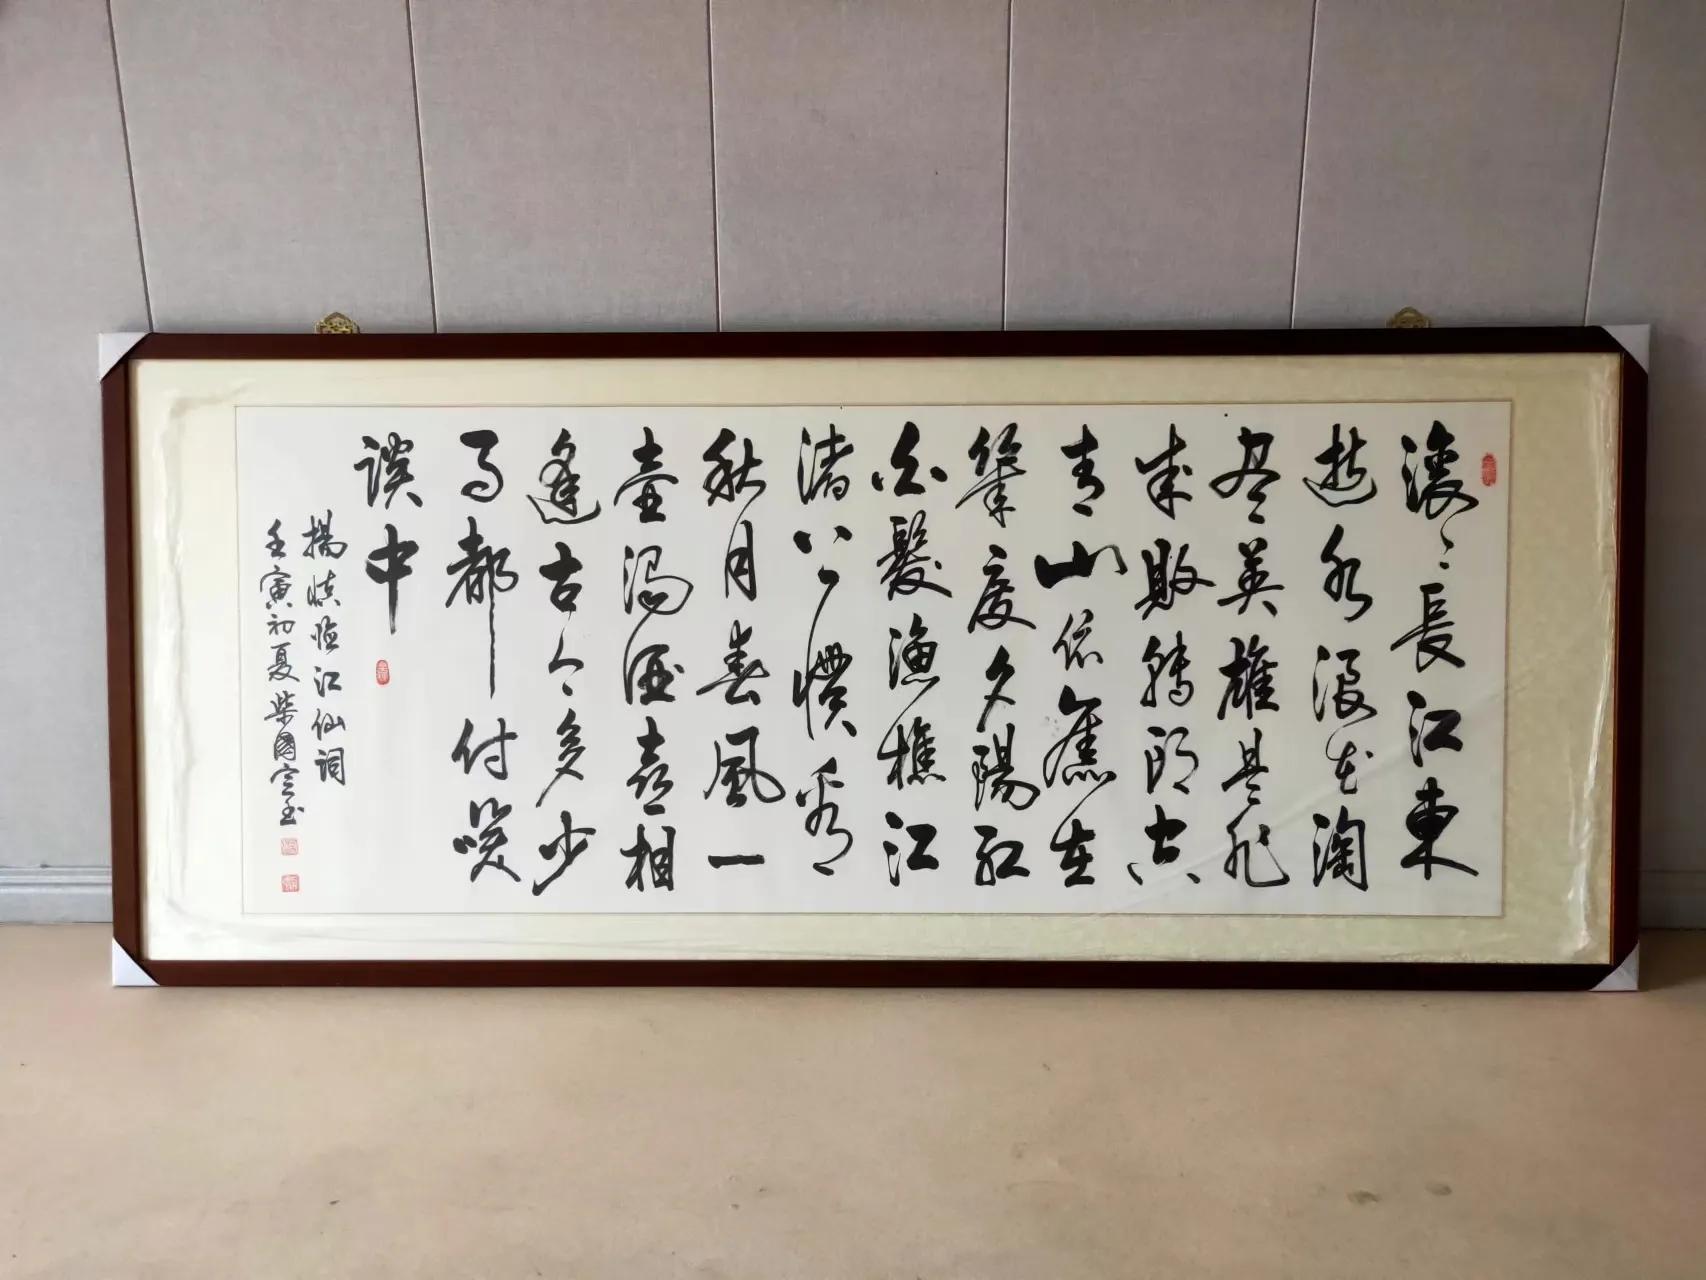 滚〻長江東
逝水浪花淘
尽英雄是非
成敗轉頭空
青山依舊在
幾度夕陽紅
白髮漁樵江
渚上慣看
秋月春風一
壺濁酒喜相
逢古今多少
事都付笑
談中
楊慎臨江仙詞
壬寅初夏柴國